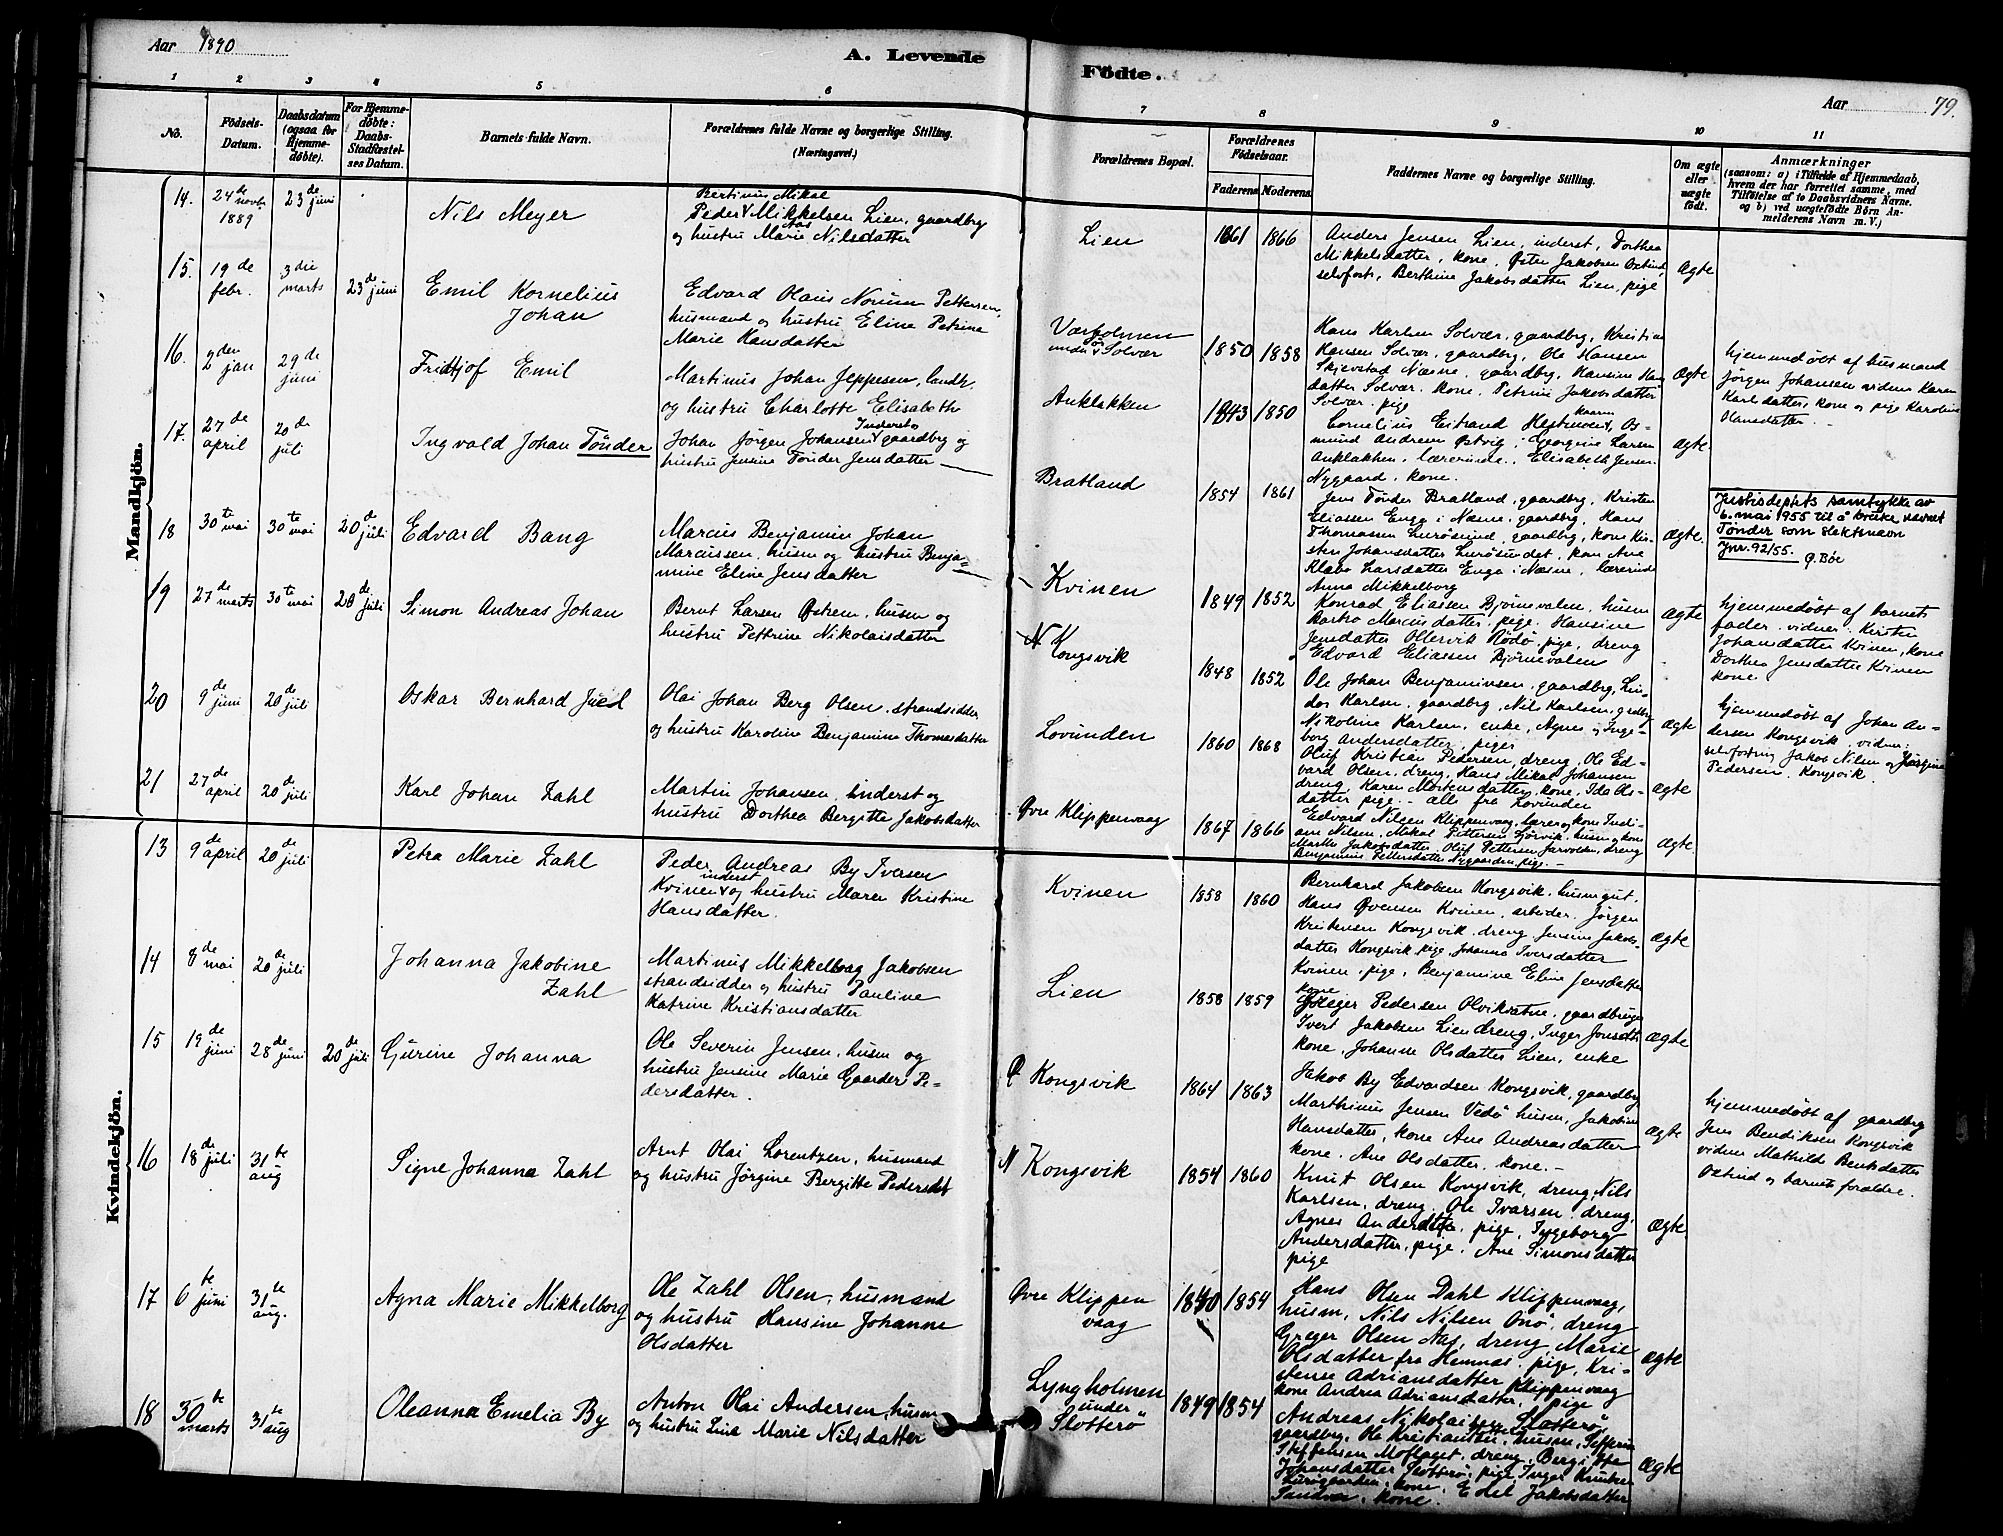 Aar 1890
A. Levende
Födte.
Aar
79.
1 2 3 4 5 6 7 8 9 10 11
No.
Födsels-Datum.
Daabsdatum (ogsaa for Hjemme-döbte).
For Hjemme-döbte: Daabs-Stadfæstel-ses Datum.
Barnets fulde Navn.
Forældrenes fulde Navne og borgerlige Stilling.
(Næringsvei.)
Forældrenes Bopæl.
Forældrenes Födselsaar.
Faderens. Moderens.
Faddernes Navne og borgerlige Stilling.
Om ægte eller uægte födt.
Anmærkninger
(saasom: a) i Tilfælde af Hjemmedaab, hvem der har forrettet samme, med Tilföielse af to Daabsvidners Navne, og b) ved uægtefödte Börn An-melderens Navn m. V.)
Mandkjön.
14. 24de novbr 1889 23de juni
Nils Meyer
Bertinus Mikal
Peder Mikkelsen Lien, gaardbrg
og hustru Marie Aas Nilsdatter
Lien
1861 1866
Anders Jensen Lien, inderst, Dorthea
Mikkelsdatter, kone, Øster Jakobsen Oxtind,
selvfost, Berthine Jakobsdatter Lien, pige
Ægte
15. 19de febr. 3die marts 23de juni
Emil Kornelius
Johan
Edvard Olaus Norum Pettersen,
husmand og hustru Eline Petrine
Marie Hansdatter
Værholmen
under Solvær
1850 1858
Hans Karlsen Solvær, gaardbrg, Kristian
Hansen Solvær, gaardbrg, Ole Hansen
Skjevstad Næsne, gaardbrg, Hansine Han
datter Solvær, kone, Petrine Jakobsdatter
Solvær, pige
Ægte
hjemmedøbt af husmand
Jörgen Johansen vidner Karen
Karlsdatter, kone og pige Karoline
Hansdatter. -
16. 2den jan 29de juni
Fridtjof Emil
Martinus Johan Jeppesen, landh.
og hustru Charlotte Elisabeth
Anklakken
1843 1850
Cornelius Estrand Hestmoen, Os-
mund Andersen Østvig, Georgine Larsen
Anklakken, lærerinde, Elisabeth Jensen
Nygaard, kone.
Ægte.
17. 27de april 20de juli
Ingvald Johan Tönder
Johan Jörgen Johansen Inderst og gaardbrg og
hustru Jensine Tönder Jensdatter
Bratland
1854 1861
Jens Tönder Bratland, gaardbrg, Kristen
Eliassen Enge i Næsne, gaardbrg, Hans
Thomassen Lurøsund, gaardbrg, kone Kir-
sten Johansdatter Lurøsundet, kone Ane
Klæbo Larsdatter Enge i Næsne, lærerinde
Anna Mikkelborg
Ægte.
Justisdeptets samtykke av
6. mai 1955 til å bruke navnet
Tønder som slektsnavn
Jnr. 92/55. G. Bøe
18 30te mai 30te mai 20de juli
Edvard Bang
Marcus Benjamin Johan
Marcussen, husm og hustru Benja-
mine Eline Jensdatter
Kvinen
1849 1852
Konrad Eliassen Bjørnevalen, husm
Marcusdatter, pige, Hansine
Jensdatter Ollervik Rödö, pige, dreng
Edvard Eliassen Bjørnevalen
Ægte
hjemmedøbt af barnets
fader, vidner: Kirsten
Johansdatter Kvinen, kone
Dorthea Jensdatter Kvinen
kone.
19 27de marts 30te mai 20de juli
Simon Andreas Johan
Bernt Larsen Østrem, husm og
hustru Petrine Nikolaisdatter
N Kongsvik
1848 1852
Ole Johan Benjaminsen, gaardbrg, Lin-
dor Karlsen, gaardbrg, Nils Karlsen, grdbrg
Nikoline Karlsen, enke, Agnes og Inge-
borg Andersdatter, piger
Ægte
hjemmedøbt af Johan An-
dersen Kongsvik, vidner:
selvfostring Jakob Nilsen og Jörgine
Pedersen, Kongsvik
20 9de juni 20de juli
Oskar Bernhard Juel
Olai Johan Berg Olsen, strandsidder
og hustru Karoline Benjamine Thomasdatter
Lovunden
1860 1868
Oluf Kristian Pedersen, dreng, Ole Ed-
vard Olsen, dreng, Hans Mikal Johansen
dreng, Karen Mortensdatter, kone, Ida Ols-
datter pige - alle fra Lovunden
Ægte
21 27de april 20de juli
Karl Johan Zahl
Martin Johansen, inderst og
hustru Dorthea Bergitte Jakobsdatter
Øvre Klippenvaag
1867 1866
Edvard Nilsen Klippenvaag, lærer og kone Indi-
ane Nilsen, Mikal Pettersen, husm og kone
Marthe Jakobsdatter, Oluf Pettersen, dreng
Benjamine Pettersdatter Nygaarden, pige. -
Ægte.
Kvindekjön.
13 9de april 20de juli
Petra Marie Zahl
Peder Andreas By Iversen
Kvinen inderst og hustru Maren Kristine
Hansdatter.
Kvinen
1858 1860
Bernhard Jakobsen Kongsvik, husmgut.
Hans Ovensen Kvinen, arbeider. Jörgen
Kristensen Kongsvik, dreng, Jensine Jakobs-
datter Kongsvik pige, Johanna Iversdatter
Kvinen, pige, Benjamine Eline Jensdatter
kone
Ægte
14 8de mai 20de juli
Johanna Jakobine
Zahl
Martinus Mikkelborg Jakobsen
strandsidder og hustru Pauline
Katrine Kristiansdatter
Lien
1858 1859
Greger Pedersen Olvikvatne, gaardbruger
Ivert Jakobsen Lien dreng, Inger Jonsdatter
kone, Johanne Olsdatter Lien, enke
Ægte
15 19de juni 28de juni 20de juli
Gurine Johanna
Ole Severin Jensen, husm og
hustru Jensine Marie Gaarder Pe-
dersdatter.
Ø Kongsvik
1864 1863
Jakob By Edvardsen Kongsvik, gaardbrg
Marthinus Jensen Vedö husm, Jakobine
Hansdatter, kone Ane Andreasdatter
kone. Ane Olsdatter, kone. -
Ægte
hjemmedøbt af gaardbrg
Jens Bendiksen Kongsvik
vidner Mathilde Bentsdatter
Oxtind og barnets forældre.
16 18de juli 31te aug
Signe Johanna Zahl
Arnt Olai Lorentzen, husmand
og hustru Jörgine Bergitte Pedersdat
N Kongsvik
1854 1860
Knut Olsen Kongsvik, dreng, Nils
Karlsen, dreng. Ole Ivarsen, dreng,
Agnes Andersdatter, pige, Ingeborg
Andersdatter, pige, Ane Simonsdatter
pige
Ægte
17 6te juni 31te aug.
Agna Marie Mikkelborg
Ole Zahl Olsen, husmand
og hustru Hansine Johanne
Olsdatter
Øvre Klippen
vaag
1850 1854
Hans Olsen Dahl Klippenvaag,
husm, Nils Nilsen Onö, dreng
Greger Olsen Aas, dreng, Marie
Olsdatter fra Hemnæs, pige, Kri-
stense Adriansdatter Klippenvaag
kone Andrea Adriansdatter, pige
Ægte
18 30te marts 31te aug
Oleanna Emelia By
Anton Olai Andersen, husm
og hustru Line Marie Nilsdatter
Lyngholmen
under
Slotterö
1849 1854
Andreas Nikolaisen Slotterö,
gaardbrg, Ole Kristiansen, husm, Sefferin
Steffensen Moflaget, dreng, Bergitte
Johansdatter Slotterö, pige, Inger Knutsen
Lurögaarden, kone, Edel Jakobsdatter
kone.
Ægte